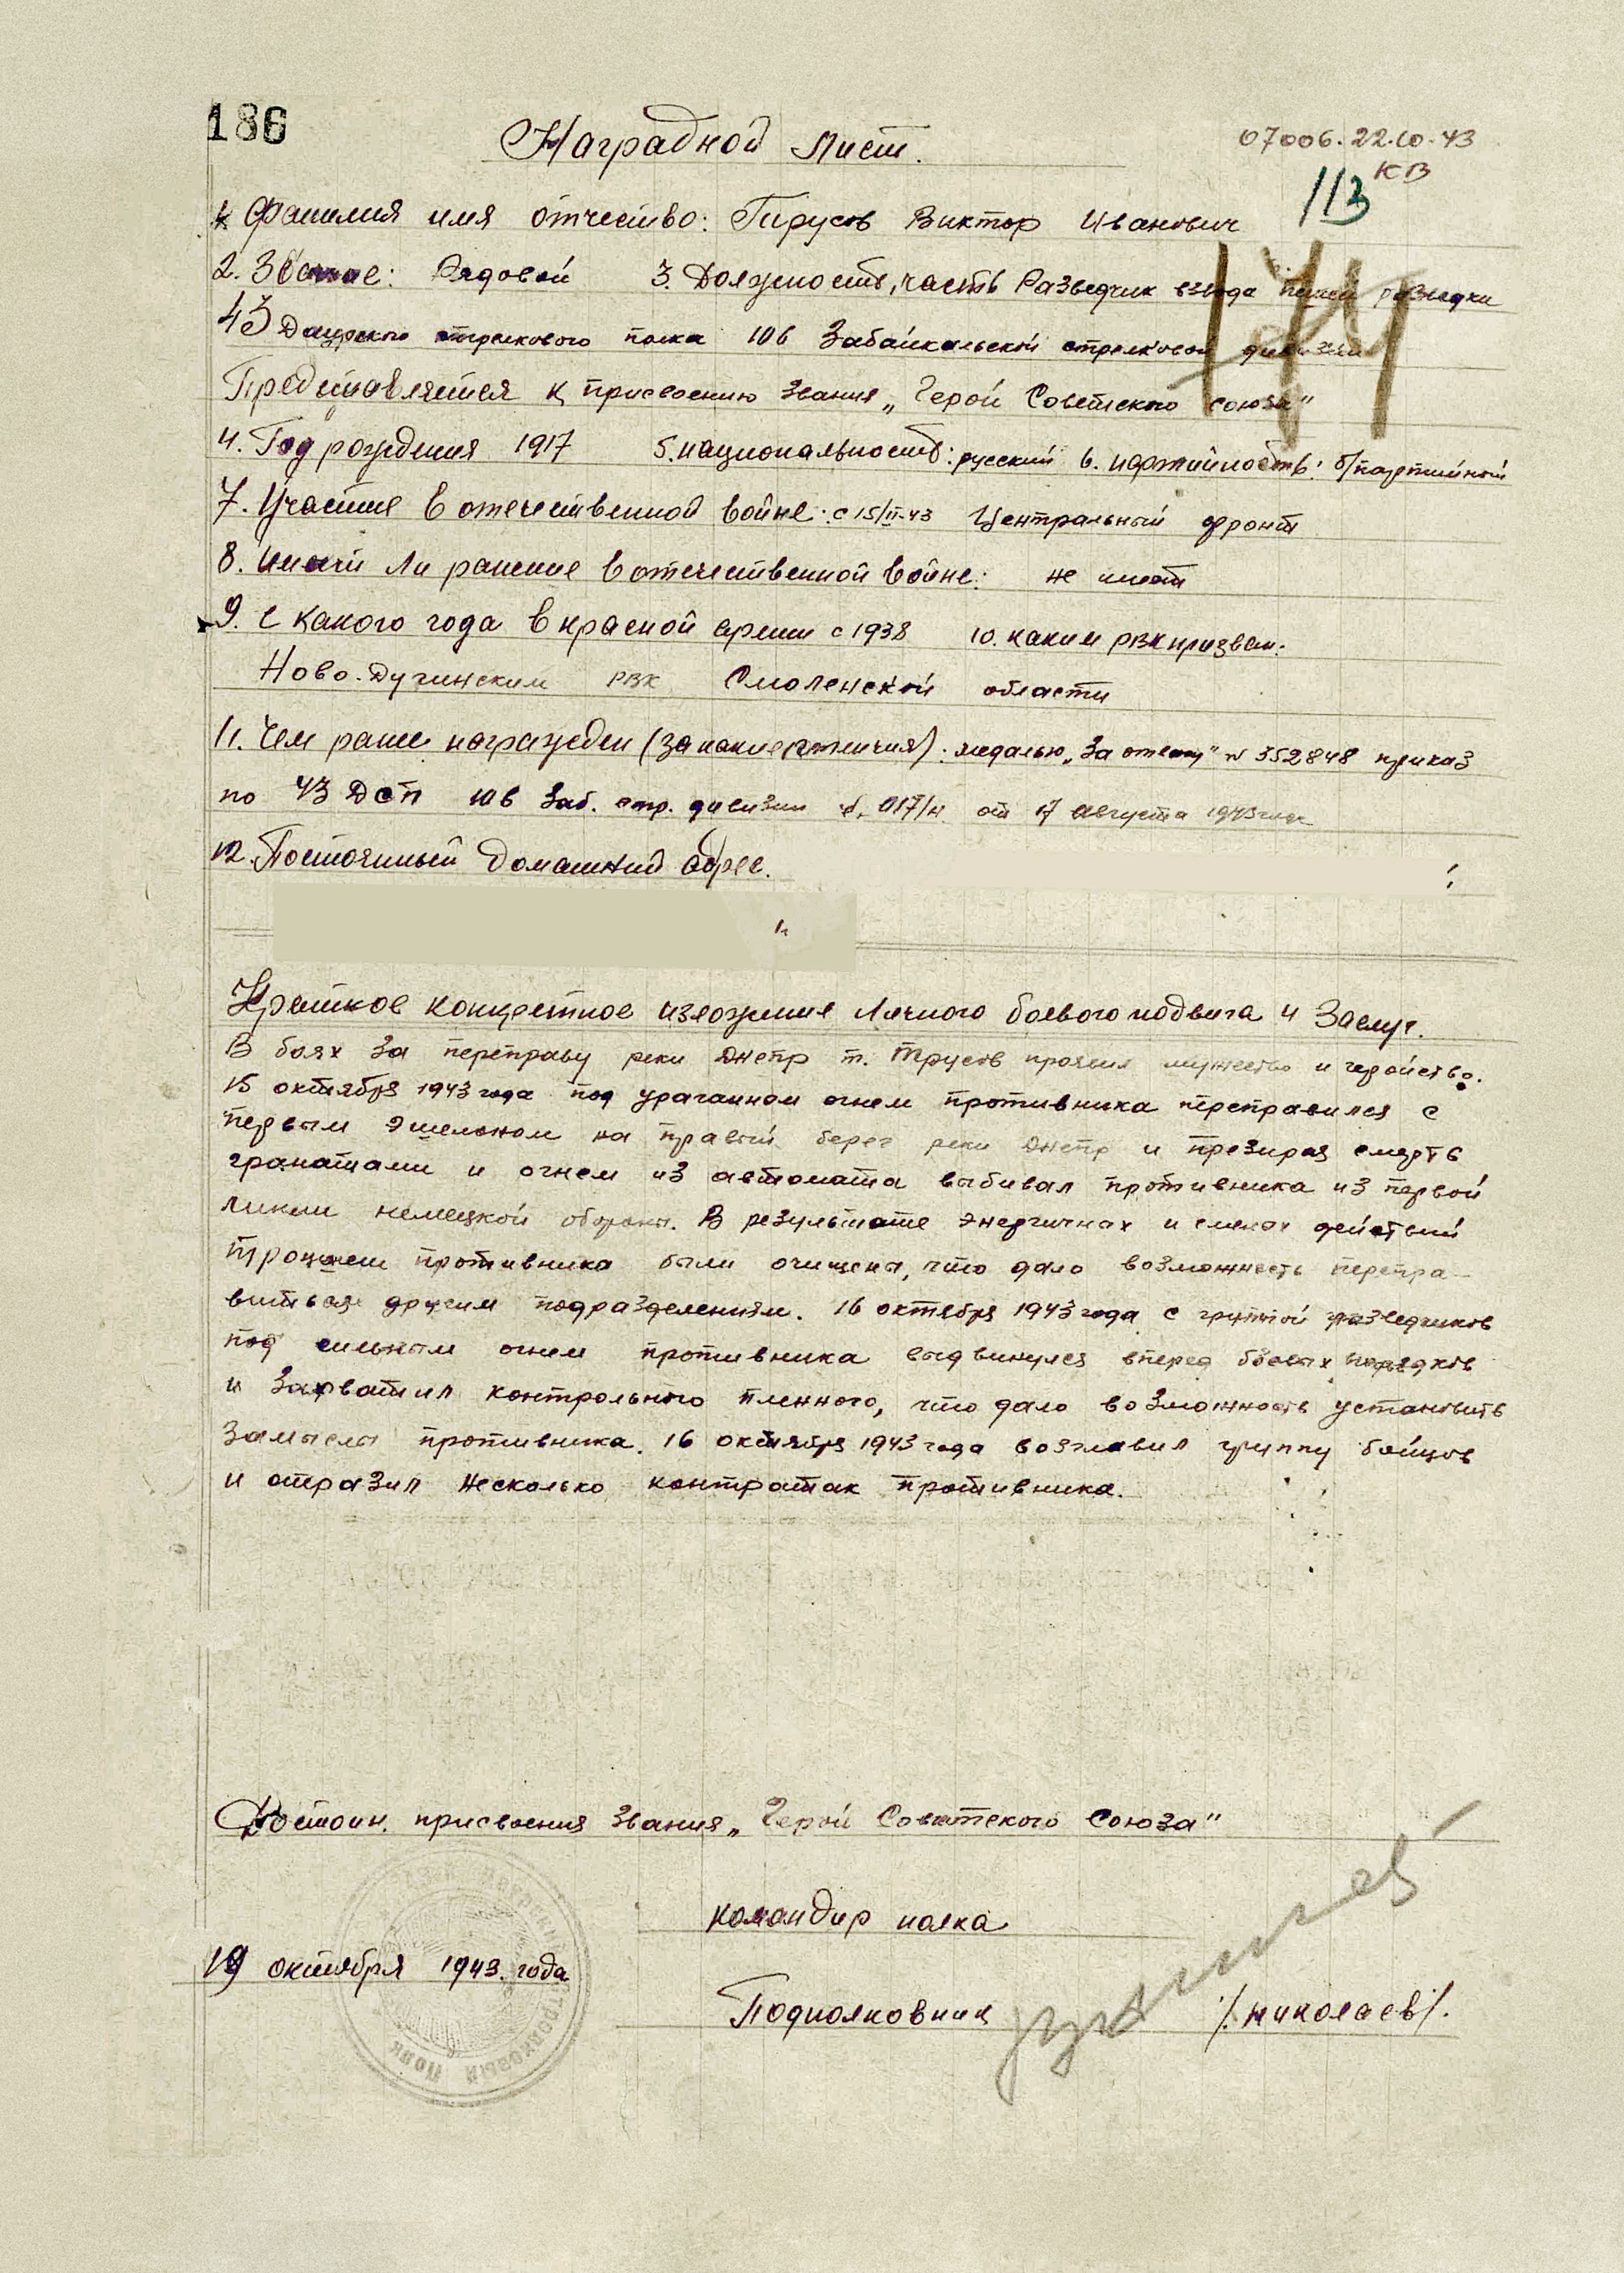 186
Наградной лист.
07006. 22.10.43
КВ
113
1. Фамилия имя отчество: Трусов Виктор Иванович
2. Звание: Рядовой 3. Должность, часть Разведчик взвода пешей разведки
43 Даурского стрелкового полка 106 Забайкальской стрелковой дивизии
Представляется к присвоению звания „Герой Советского союза"
4. Год рождения 1917 5. национальность: русский 6. партийность: б/партийный
7. Участие в отечественной войне: с 15/II-43 Центральный фронт
8. Имеет ли ранение в отечественной войне: не имеет
9. С какого года в красной армии с 1938 10. каким РВК призван:
Ново-Дугинским РВК Смоленской области
11. Чем ранее награжден (за какие отличия): медалью „За отвагу" № 552848 приказ
по 43 ДСП 106 Заб. стр. дивизии № 017/н от 17 августа 1943 года
12. Постоянный домашний адрес.
Краткое конкретное изложение личного боевого подвига и заслуг.
В боях за переправу реки Днепр т. Трусов проявил мужество и геройство.
15 октября 1943 года под ураганном огнем противника переправился с
первым эшелоном на правый берег реки Днепр и презирая смерть
гранатами и огнем из автомата выбивал противника из первой
линии немецкой обороны. В результате энергичных и смелых действий
траншеи противника были очищены, что дало возможность перепра-
виться другим подразделениям. 16 октября 1943 года с группой разведчиков
под сильным огнем противника выдвинулся вперед боевых порядков
и захватил контрольного пленного, что дало возможность установить
замыслы противника. 16 октября 1943 года возглавил группу бойцов
и отразил несколько контратак противника.
Достоин присвоения звания „Герой Советского Союза"
командир полка
19 октября 1943. года
Подполковник /.Николаев/.
стрелковый полк